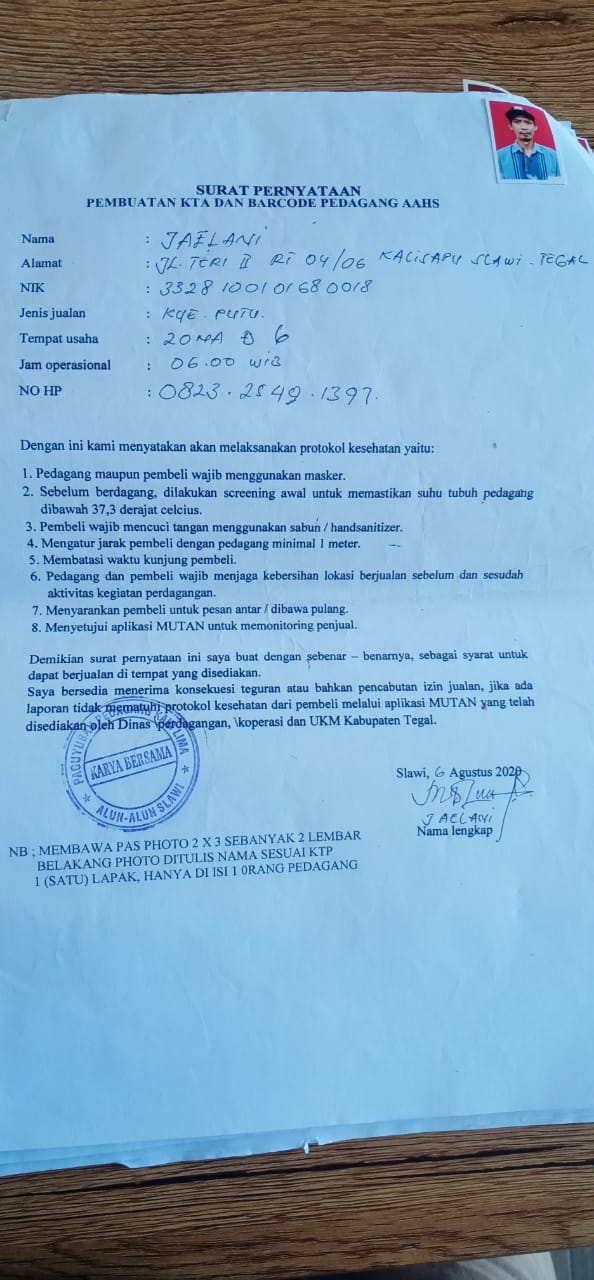 SURAT PERNYATAAN
PEMBUATAN KTA DAN BARCODE PEDAGANG AAHS
Nama : JAELANI
Alamat : JL. TERI II RT 04/06 KALISAPU SLAWI - TEGAL
NIK : 3328100101680018
Jenis jualan : KUE PUTU.
Tempat usaha : ZONA D 6
Jam operasional : 06.00 WIB
NO HP : 0823.2549.1397.
Dengan ini kami menyatakan akan melaksanakan protokol kesehatan yaitu:
1. Pedagang maupun pembeli wajib menggunakan masker.
2. Sebelum berdagang, dilakukan screening awal untuk memastikan suhu tubuh pedagang
dibawah 37,3 derajat celcius.
3. Pembeli wajib mencuci tangan menggunakan sabun / handsanitizer.
4. Mengatur jarak pembeli dengan pedagang minimal 1 meter.
5. Membatasi waktu kunjung pembeli.
6. Pedagang dan pembeli wajib menjaga kebersihan lokasi berjualan sebelum dan sesudah
aktivitas kegiatan perdagangan.
7. Menyarankan pembeli untuk pesan antar / dibawa pulang.
8. Menyetujui aplikasi MUTAN untuk memonitoring penjual.
Demikian surat pernyataan ini saya buat dengan sebenar – benarnya, sebagai syarat untuk
dapat berjualan di tempat yang disediakan.
Saya bersedia menerima konsekuesi teguran atau bahkan pencabutan izin jualan, jika ada
laporan tidak mematuhi protokol kesehatan dari pembeli melalui aplikasi MUTAN yang telah
disediakan oleh Dinas \perdagangan, \koperasi dan UKM Kabupaten Tegal.
PAGUYUBAN PEDAGANG KAKI LIMA
KARYA BERSAMA
ALUN-ALUN SLAWI
Slawi, 6 Agustus 2020
JAELANI
Nama lengkap
NB ; MEMBAWA PAS PHOTO 2 X 3 SEBANYAK 2 LEMBAR
BELAKANG PHOTO DITULIS NAMA SESUAI KTP
1 (SATU) LAPAK, HANYA DI ISI 1 0RANG PEDAGANG